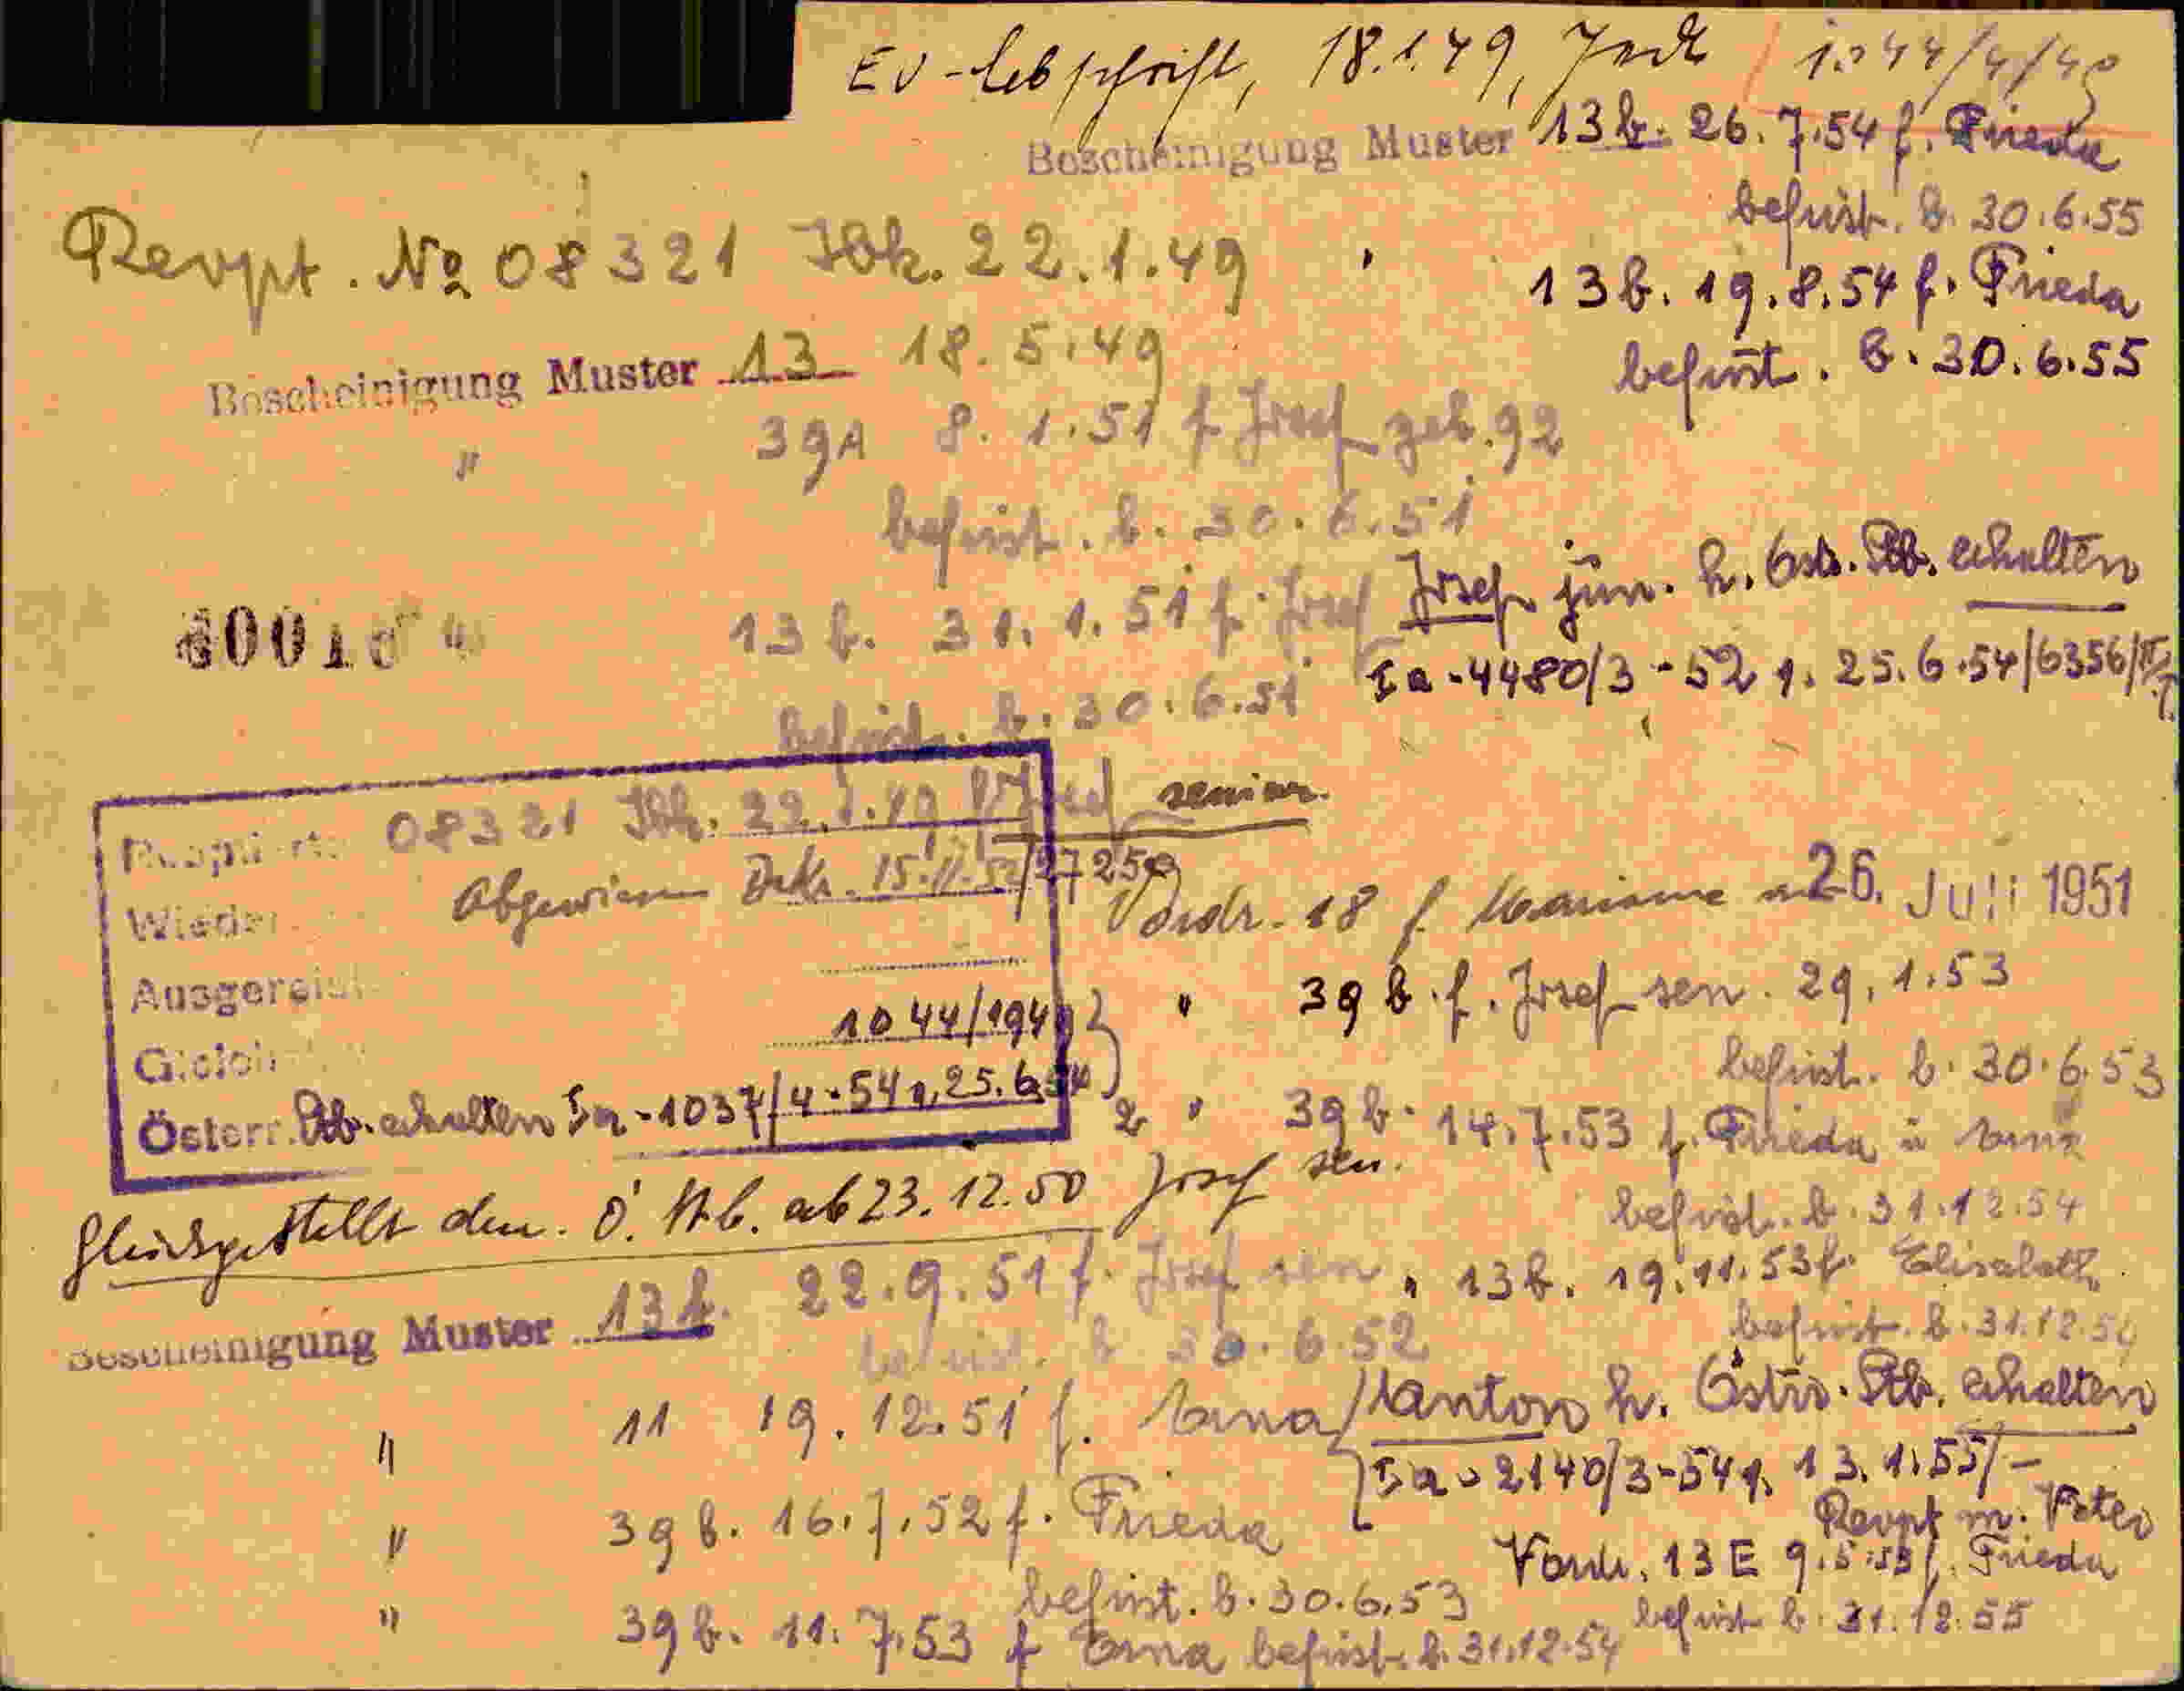 EV-Abschrift, 18.1.49, 1044/4/49
Bescheinigung Muster 13b. 26.7.54 f. Frieda
befrist. b. 30.6.55
Revpt. No 08321 Ibk. 22.1.49
" 13b. 19.8.54 f. Frieda
befrist. b. 30.6.55
Bescheinigung Muster 13 18.5.49
" 39A 8.1.51 f Josef geb. 92
befrist. b. 30.6.51
Josef jun. h. Östr. Stb. erhalten
13b. 31.1.51 f. Josef
Ia-4480/3-52 v. 25.6.54/6356/IV
befrist. b. 30.6.51
08321 Ibk. 22.1.49 Josef senior.
Wieder
abgewiesen Dekr. 15.11.52/27259
Vordr. 18 f. Marianne 26. Juli 1951
Ausgereist
" 39b. f. Josef sen. 29.1.53
1044/1949
befrist. b. 30.6.53
Gleich
Österr. Stb. erhalten Ia-1037/4-54 v. 25.6.54
2 " 39b. 14.7.53 f. Frieda u Erna
befrist. b. 31.12.54
Gleichgestellt den. Ö. Stb. ab 23.12.50 Josef sen.
Bescheinigung Muster 13b. 22.9.51 f. Josef sen
befrist. b 30.6.52
" 13b. 19.11.53 f. Elisabeth
befrist. b. 31.12.54
" 11 19.12.51 f. Erna
Anton h. Östr. Stb. erhalten
Ia-2140/3-54 v. 13.1.55/-
Revpt m. Vater
" 39b. 16.7.52 f. Frieda
befrist. b. 30.6.53
Vordr. 13E 9.5.55 f. Frieda
befrist b. 31.12.55
" 39b. 11.7.53 f Erna befrist. b. 31.12.54